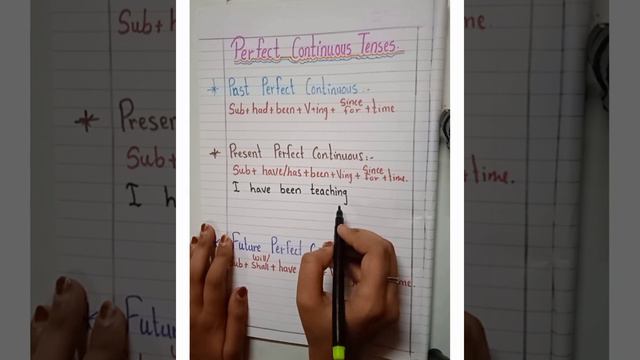 Perfect Continuous Tenses.
* Past Perfect Continuous :-
Sub + had + been + V+ing + Since/for + time
* Present Perfect Continuous :-
Sub + have/has + been + Ving + Since/for + time.
I have been teaching
Future Perfect
Sub + will/Shall + have